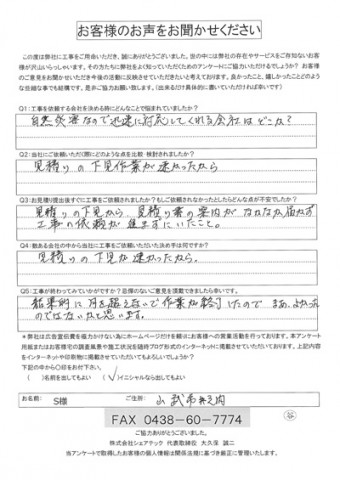 お客様のお声をお聞かせください
この度は弊社に工事をご用命いただき、誠にありがとうございました。世の中には弊社の存在やサービスをご存知ないお客
様が沢山いらっしゃいます。その方たちに弊社をよく知っていただくためのアンケートにご協力いただけるでしょうか？ お客様
のご意見をお聞かせいただき今後の活動に反映させていただきたいと考えております。良かったこと、嬉しかったことどのよう
な些細な事でも結構です。是非ご協力お願い致します。（出来るだけ具体的に書いていただければ幸いです）
Q1：工事を依頼する会社を決める時にどんなことで悩まれていましたか？
自然災害なので迅速に対応してくれる会社はどこか？
Q2：当社にご依頼いただく際にどのような点を比較・検討されましたか？
見積りの下見作業が速かったから
Q3：お見積り提出後すぐにご工事を依頼されましたか？もしご依頼されなかったとしたらどんな点が不安でしたか？
見積りの下見から、見積り書の案内がなかなか届かず
工事の依頼が進まずにいたこと。
Q4：数ある会社の中から当社に工事をご依頼いただいた決め手は何ですか？
見積りの下見が速かったから。
Q5：工事が終わってみていかがですか？忌憚のないご意見を頂戴できましたら幸いです。
結果的に月を越えないで作業が終了したので まあ、よかった
のではないかと思います。
＊弊社は広告宣伝費を極力かけない為にホームページだけを頼りにお客様への営業活動を行っております。本アンケート
用紙またはお客様宅の調査風景や施工状況を随時ブログ形式のインターネットに掲載させていただいております。上記内容
をインターネットや印刷物に掲載させていただいてもよろしいでしょうか？
下記の中から〇印をお付下さい。
（ ）名前を出してもよい （✓）イニシャルなら出してもよい
お名前： S様 山武市
FAX 0438-60-7774
ご協力ありがとうございました。
株式会社シェアテック 代表取締役 大久保 誠二
当アンケートで取得したお客様の個人情報は関係法規に基づき厳正に管理いたします。